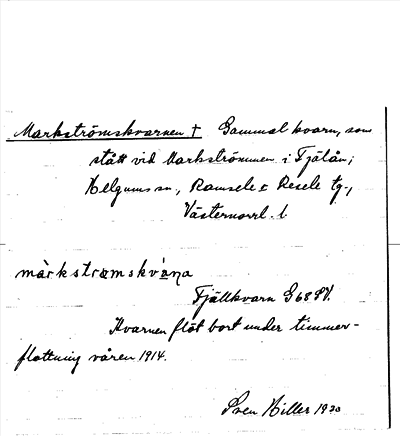 Markströmskvarnen † Gammal kvarn, som
stått vid Markströmmen i Fjälån;
Helgums sn, Ramsele o Resele tg,
Västernorrl. l
màrkstrœmskvàṇa
Fjällkvarn G 68 SV.
Kvarnen flöt bort under timmer-
flottning våren 1914.
Sven Hiller 1930